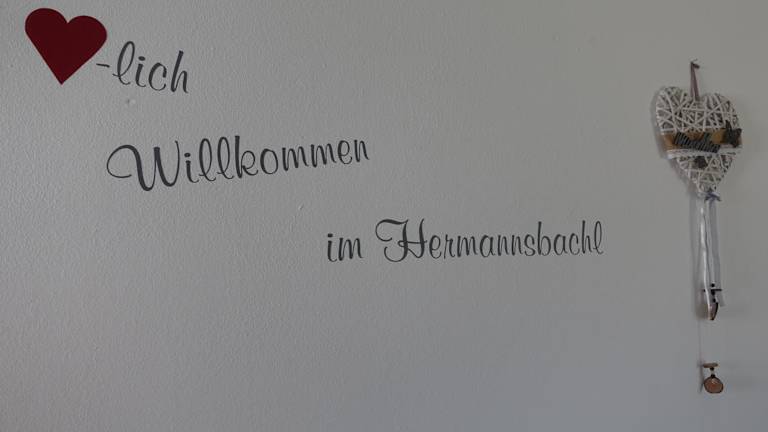 -lich
Willkommen
im Hermannsbachl